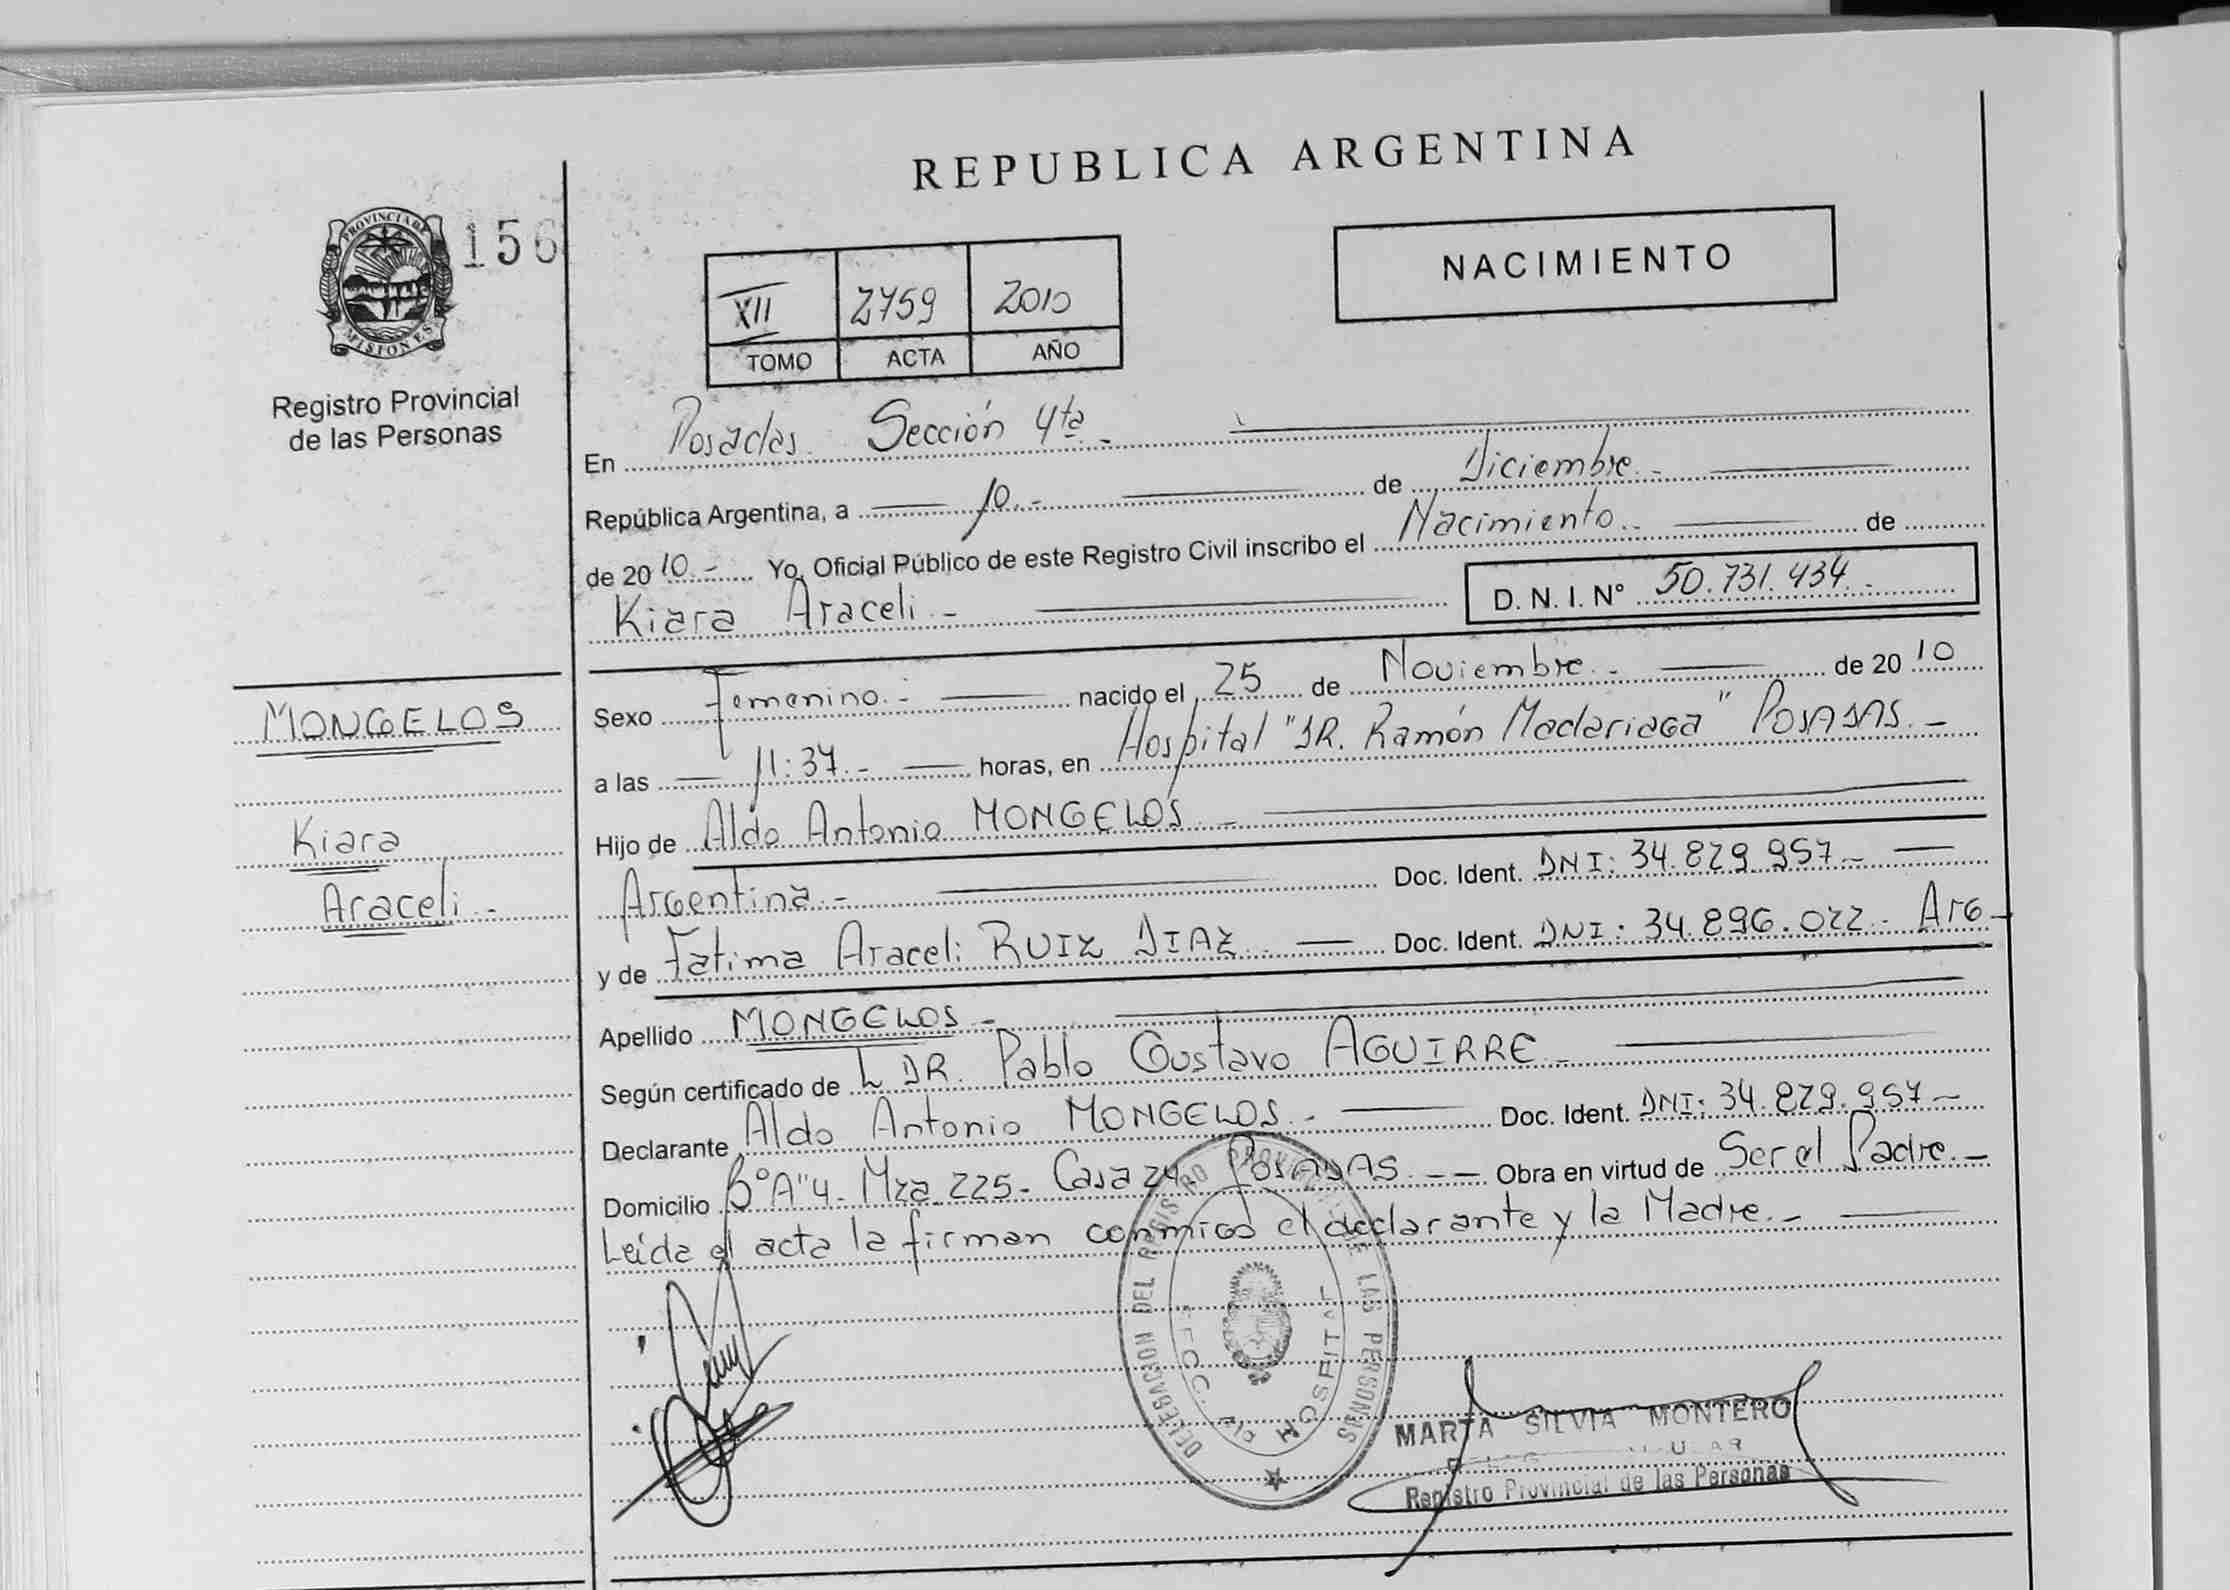 REPUBLICA ARGENTINA
PROVINCIA DE
MISIONES
156
Registro Provincial
de las Personas
XII 2759 2010
TOMO ACTA AÑO
NACIMIENTO
En Posadas Sección 4ta.-
República Argentina, a 10.- de Diciembre.-
de 2010.- Yo, Oficial Público de este Registro Civil inscribo el Nacimiento.. de
Kiara Araceli.- D. N. I. N° 50.731.434.-
MONGELOS
Kiara
Araceli.-
Sexo Femenino.- nacido el 25 de Noviembre.- de 2010
a las 11:37.- horas, en Hospital "DR. Ramón Madariaga" POSADAS.-
Hijo de Aldo Antonio MONGELOS.-
Argentina.- Doc. Ident. DNI: 34.829.957.-
y de Fatima Araceli RUIZ DIAZ.- Doc. Ident. DNI: 34.896.022.- Arg-
Apellido MONGELOS.-
Según certificado de L DR. Pablo Gustavo AGUIRRE.-
Declarante Aldo Antonio MONGELOS.- Doc. Ident. DNI: 34.829.957-
Domicilio B°A"4- Mza 225- Casa 24 POSADAS.- Obra en virtud de Ser el Padre.-
Leida el acta la firman conmigo el declarante y la Madre.-
DELEGACION DEL REGISTRO PROVINCIAL DE LAS PERSONAS
HOSPITAL
MARTA SILVIA MONTERO
Registro Provincial de las Personas